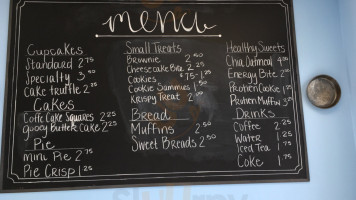 menu
Cupcakes
Standard 2.75
Specialty 3.50
Cake truffle 2.25
Cakes
Coffe Cake Squares 2.25
gooey Butter Cake 2.25
Pie
mini Pie 2.75
Pie Crisp 1.25
Small Treats
Brownie 2.50
Cheesecake Bite 2.25
Cookies .75-1.25
Cookie Sammies 1.50
Krispy Treat 2.00
Bread
Muffins 2.50
Sweet Breads 2.50
Healthy Sweets
Chia Oatmeal
Energy Bite
Protein Cookie
Protein Muffin
Drinks
Coffee 2.25
Water 1.25
Iced Tea 1.75
Coke 1.75